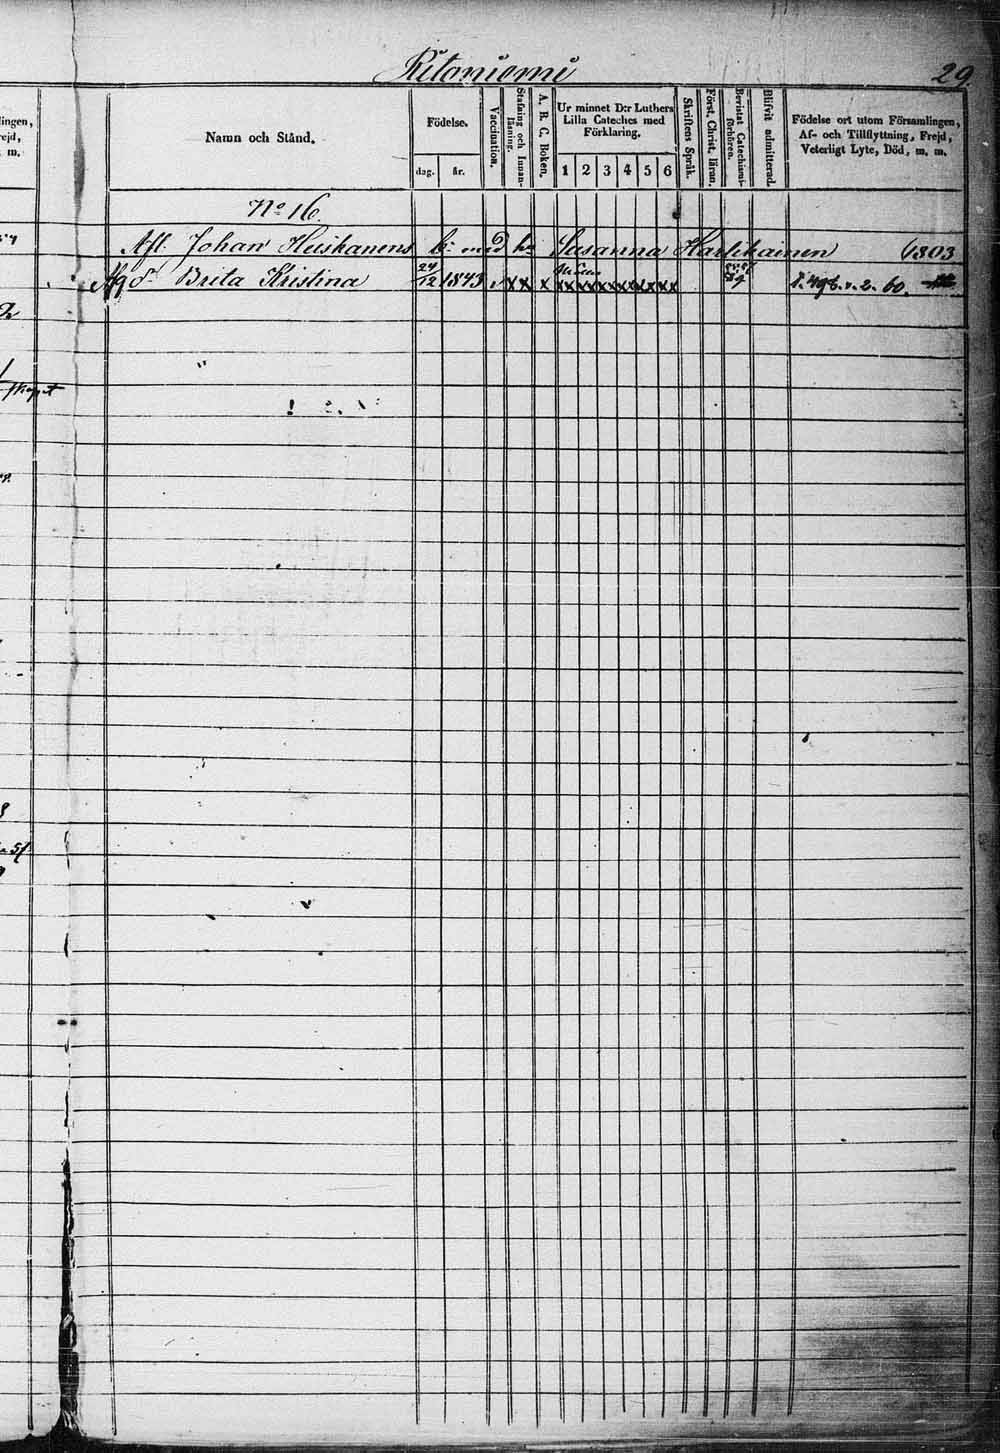 Ritoniemi 29.
Namn och Stånd.
Födelse.
dag. år.
Vaccination.
Stafning och Innan-
läsning.
A. B. C. Boken.
Ur minnet D:r Luthers
Lilla Cateches med
Förklaring.
1 2 3 4 5 6
Skriftens Språk.
Först. Christ. läran.
Bevistat Catechismi-
förhören.
Blifvit admitterad.
Födelse ort utom Församlingen,
Af- och Tillflyttning, Frejd,
Veterligt Lyte, Död, m. m.
No 16.
Afl. Johan Heiskanens b: med h. Susanna Hartikainen 1803
dr Brita Kristina 24/12 1843 x x x x x x x x x x x x x x x 59